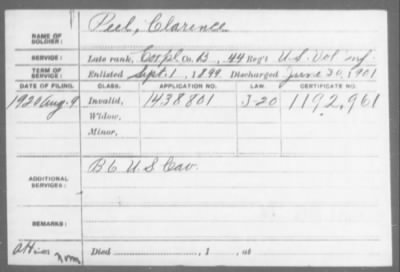 NAME OF SOLDIER: Peel, Clarence
SERVICE: Late rank, Corpl Co. B, 44 Reg't U.S. Vol. Inf.
TERM OF SERVICE: Enlisted Sept. 1, 1899, Discharged June 30, 1901
DATE OF FILING. CLASS. APPLICATION NO. LAW. CERTIFICATE NO.
1920 Aug. 9 Invalid, 1438801 J-20 1192,961
Widow,
Minor,
ADDITIONAL SERVICES: B 6 U S Cav.
REMARKS:
Died , 1 , at